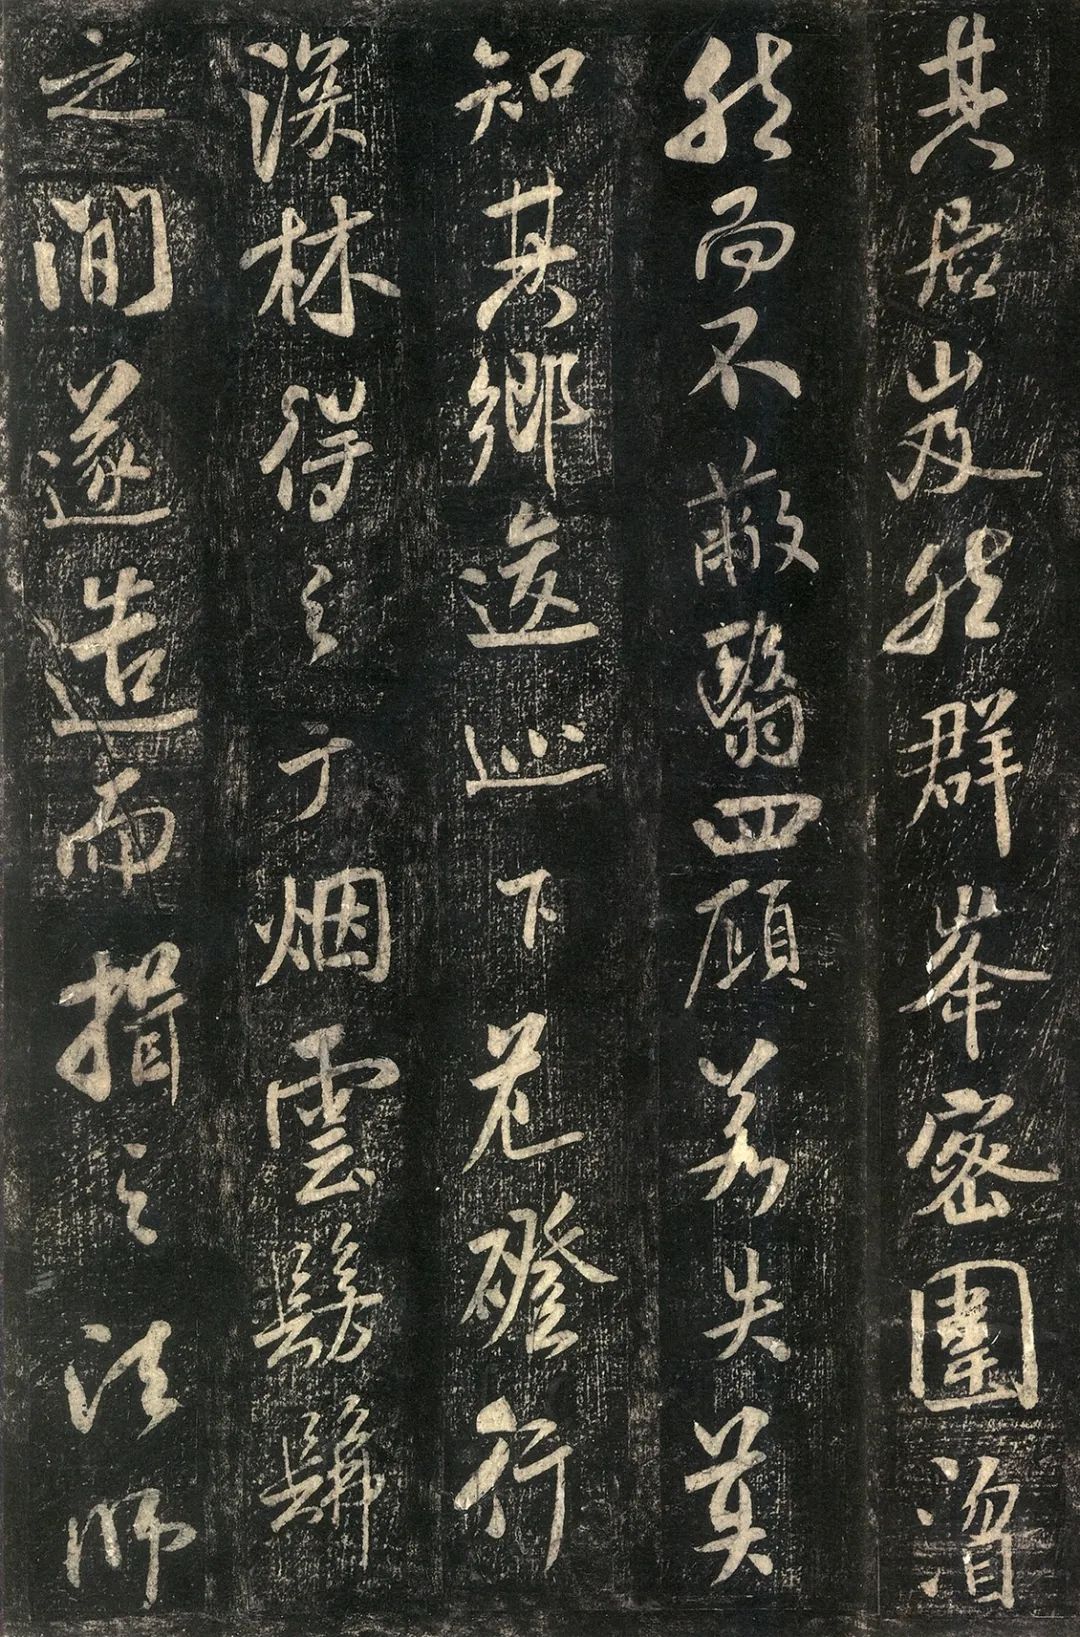 其居岌然群峯密圍
然而不蔽翳四顧若失莫
知其鄉逡巡下危磴行
深林得之于烟雲髣髴
之間遂造而揖之法師